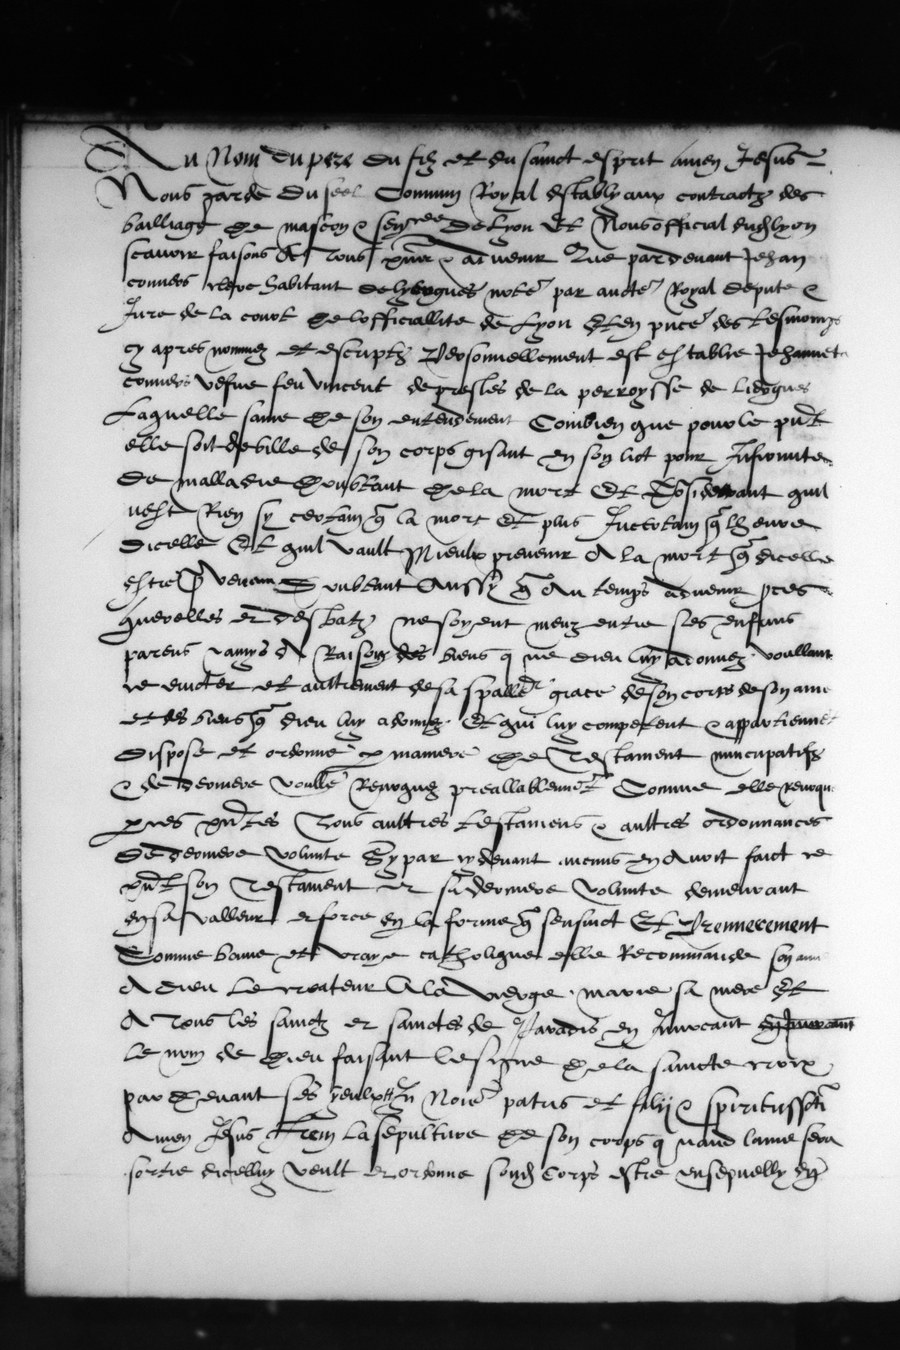 Au Nom du pere du filz et du sainct esprit amen Jesus
Nous garde du seel Commun Royal estably aux contractz des
bailliage de mascon & sen~cee de Lyon Et Nous official dudlyon
scavoir faisons A Tous p~ns & advenir Que pardevant Jehan
conuers clerc habitant de note par aucte Royal depute &
Jure de la court de lofficiallite de Lyon Et en p~nce des tesmoingz
cy apres nommez et escriptz Personnellement est establie Jehannete
conuers vefue feu vincent de presles de la perroysse de
Laquelle saine de son entendement Combien que pour le p~nt
elle soit debille de son corps gisant en son lict pour Infirmite
de malladie doubtant de la mort Et Considerant quil
nest Rien sy certain q la mort Et plus Incertain q lheure
dicelle Et quil vault Mieulx prevenir A la mort q dicelle
estre p~venu Doubtant Aussy q Au temps advenir p~ces
querelles et desbatz ne soyent meuz entre ses enfans
parens & amys A Raison des biens q ue dieu luy a donnez voullant
ce eviter et aultrement de sa spalle grace de son corps de son ame
et des biens q dieu luy a donnez Et qui luy competent & appartiennet
dispose et ordonne p maniere de Testament nuncupatifz
& de derniere voulte Revoquez preallablement Comme elle revoque
p ces p~ntes Tous aultres testamens & aultres ordonnances
de derniere volunte Sy par cydevant aucuns en Avoit faict ce
p~nt son Testament et sa derniere volunte demeurant
en sa valleur et force en la forme q sensuict Et Premierement
Comme bonne et vraye catholique elle Recommande son ame
A dieu Le createur A la vierge marie sa mere Et
A Tous les sainctz et sainctes de Paradis en Invocant en Invocant
Le nom de dieu faisant le signe de la saincte croix
par devant ses yeulx In Noie patris et filij & spiritussti
Amen Jesus Item La sepulture de son corps q uand lame sera
sortie dicelluy veult et ordonne sond Corps estre ensepuelly